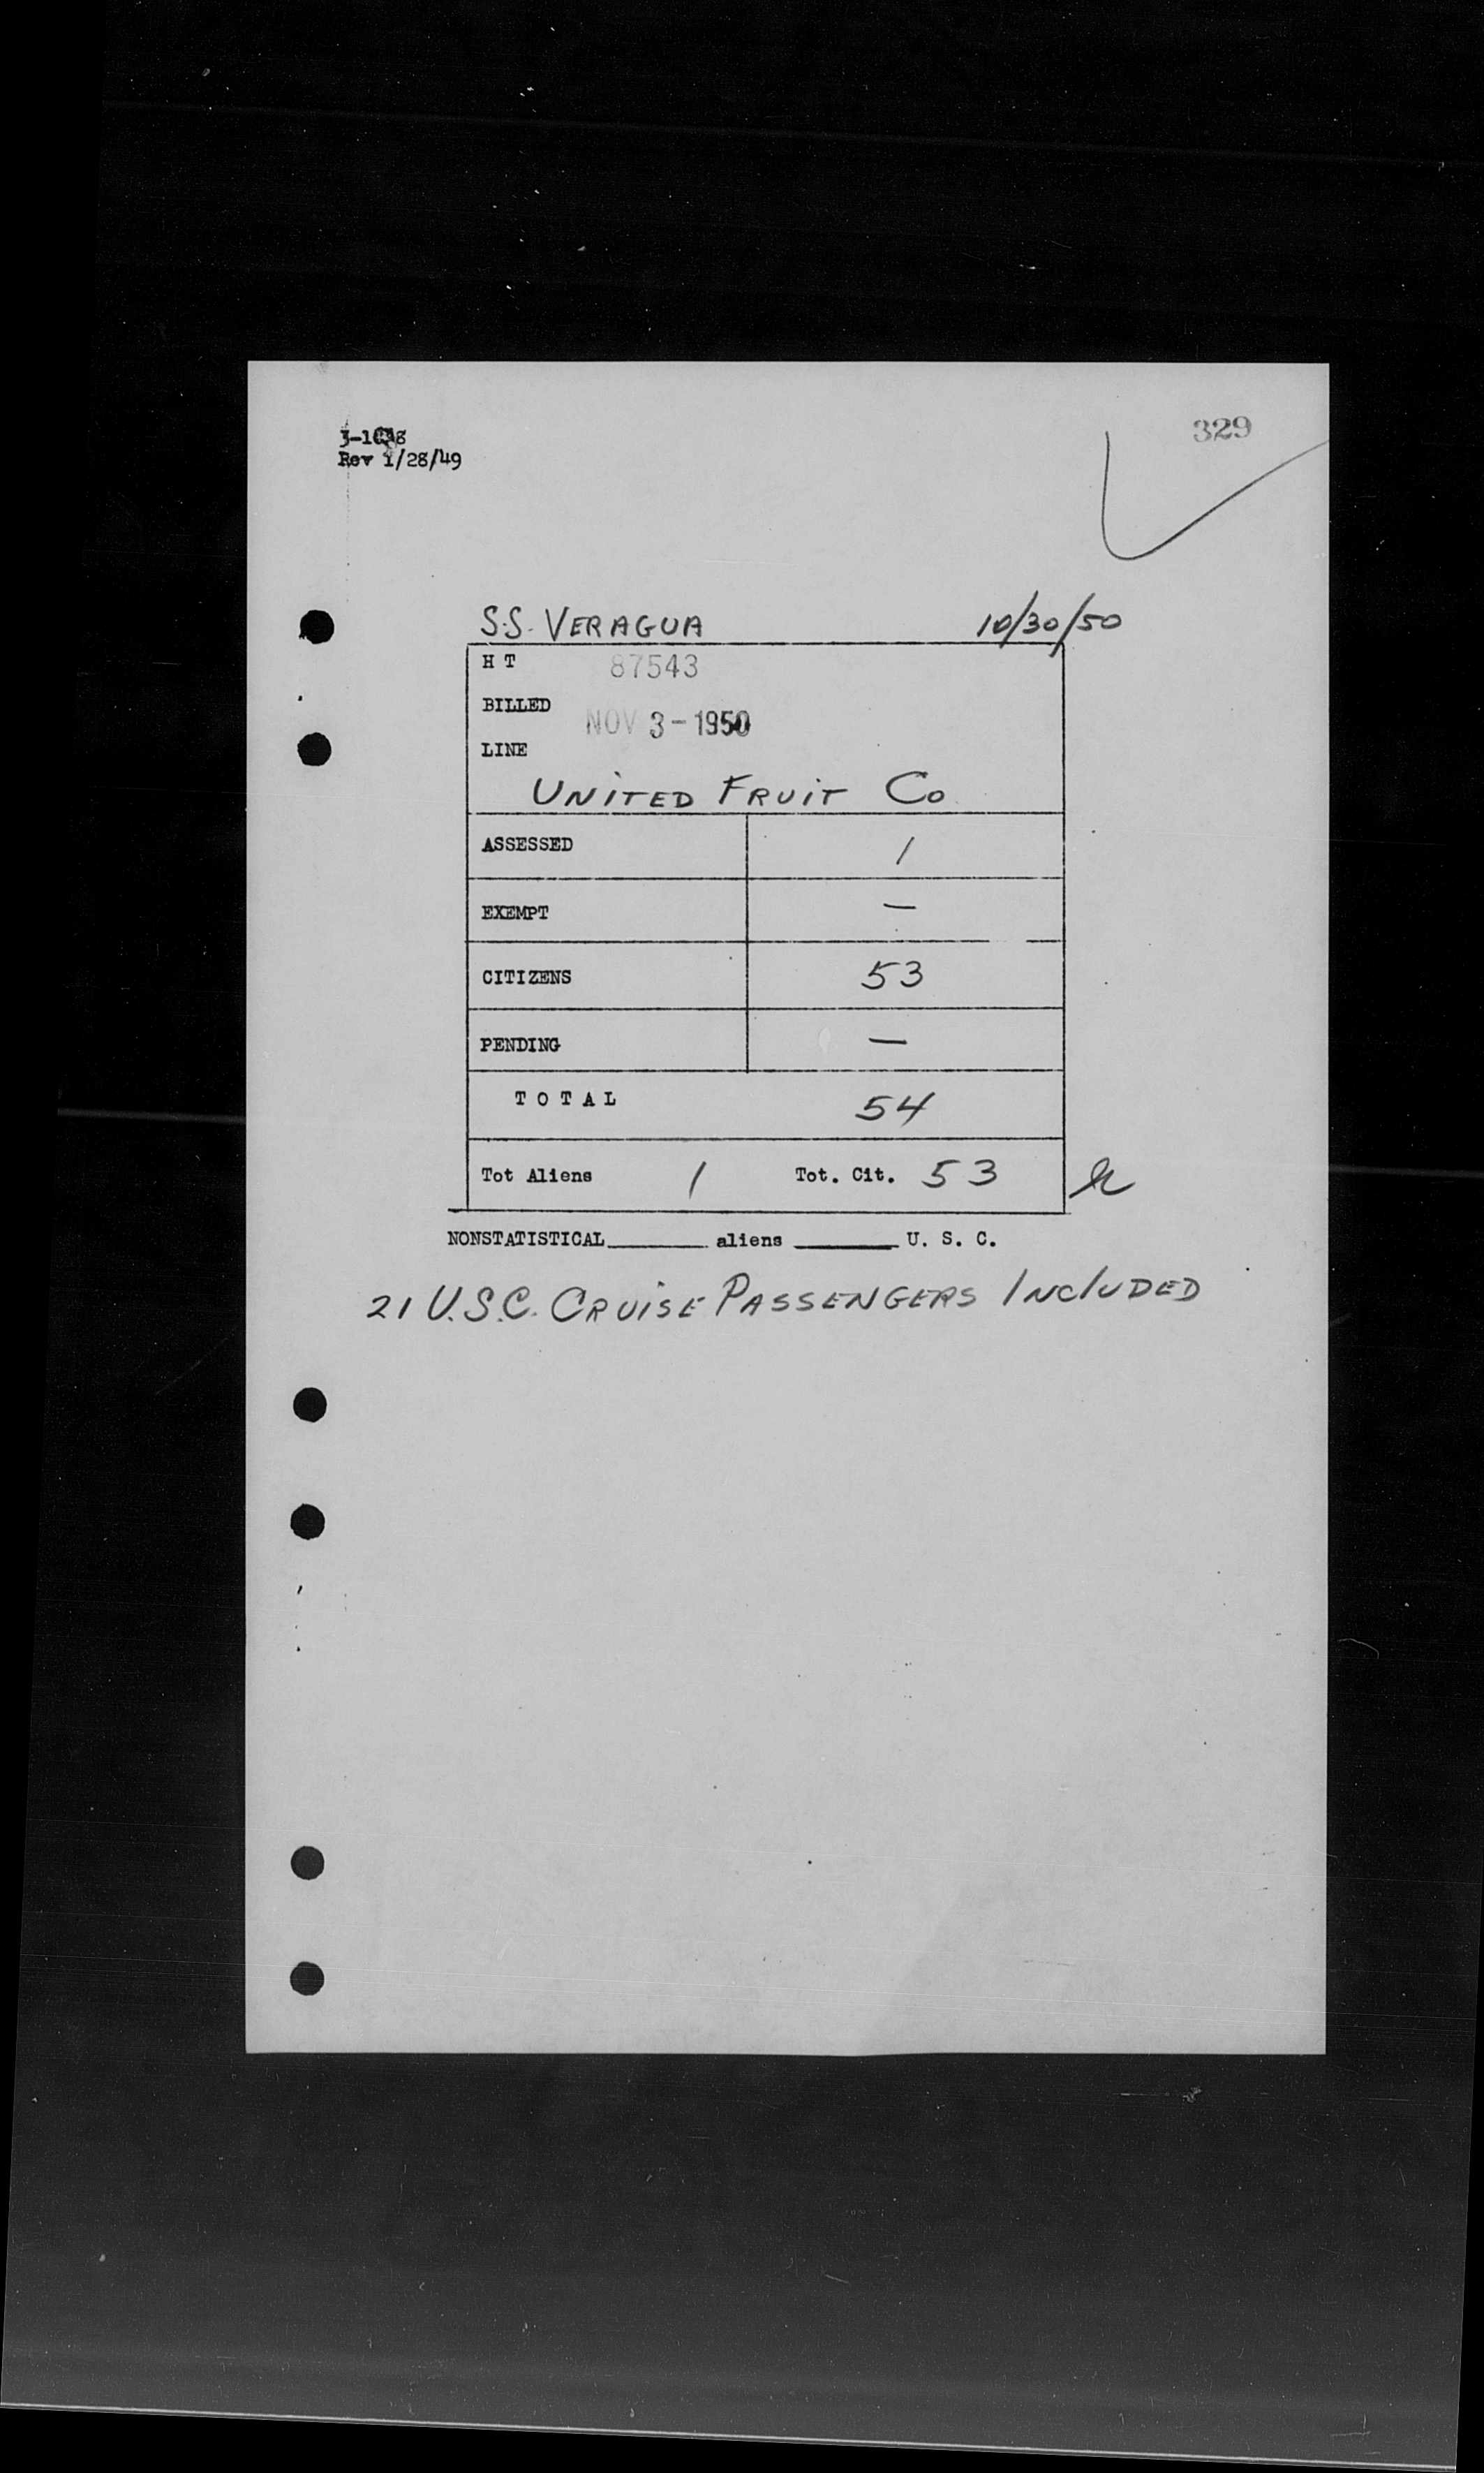 329
Rev 1/28/49
S.S. VERAGUA 10/30/50
H T 87543
BILLED NOV 3-1950
LINE
UNITED FRUIT Co
ASSESSED 1
EXEMPT —
CITIZENS 53
PENDING —
TOTAL 54
Tot Aliens 1 Tot. Cit. 53
NONSTATISTICAL______ aliens ______ U. S. C.
21 U.S.C. CRUISE PASSENGERS INCLUDED